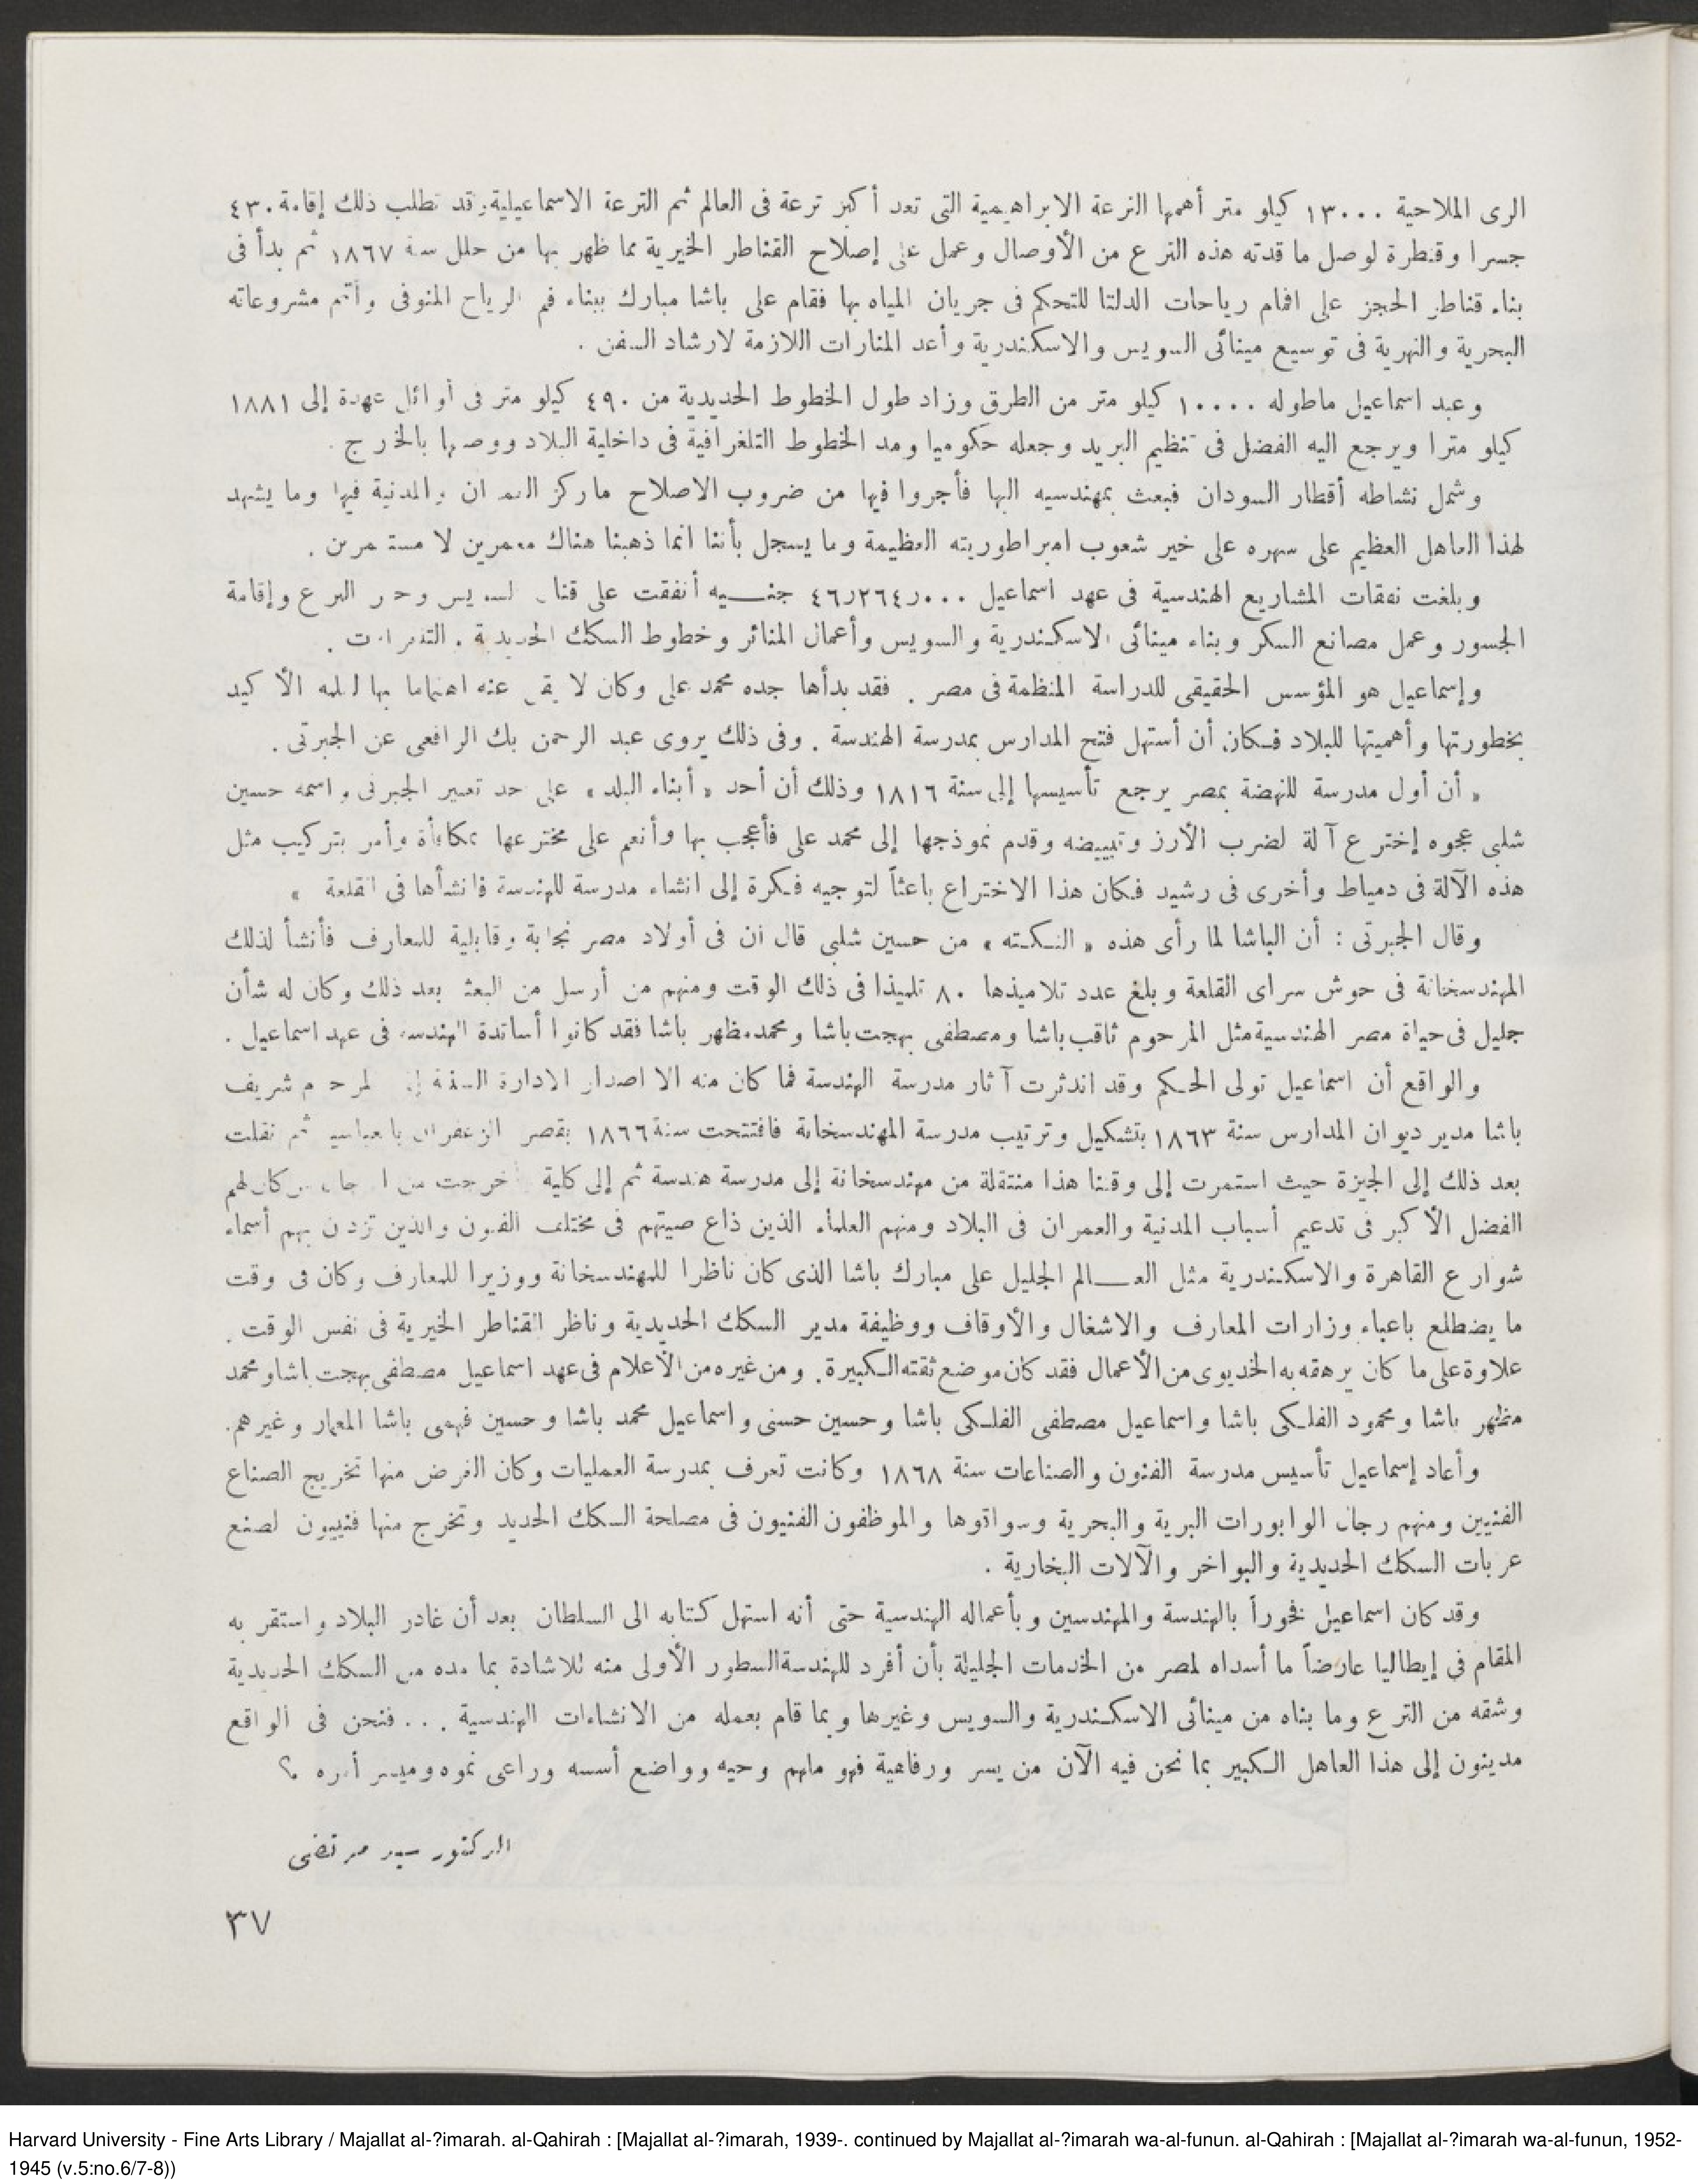 الرى الملاحية ١٣٠٠٠ كيلو متر أهمها الترعة الابراهيمية التى تعد أكبر ترعة فى العالم ثم الترعة الاسماعيلية وقد تطلب ذلك إقامة ٤٣٠
جسرا وقنطرة لوصل ما قدته هذه الترع من الأوصال وعمل على إصلاح القناطر الخيرية مما ظهر بها من خلل سنة ١٨٦٧ ثم بدأ فى
بناء قناطر الحجز على افمام رياحات الدلتا للتحكم فى جريان المياه بها فقام على باشا مبارك ببناء فم الرياح المنوفى وأتم مشروعاته
البحرية والنهرية فى توسيع مينائى السويس والاسكندرية وأعد المنارات اللازمة لارشاد السفن .
وعبد اسماعيل ماطوله ١٠٠٠٠ كيلو متر من الطرق وزاد طول الخطوط الحديدية من ٤٩٠ كيلو متر فى أوائل عهدة إلى ١٨٨١
كيلو مترا ويرجع اليه الفضل فى تنظيم البريد وجعله حكوميا ومد الخطوط التلغرافية فى داخلية البلاد ووصلها بالخارج .
وشمل نشاطه أقطار السودان فبعث بمهندسيه اليها فأجروا فيها من ضروب الاصلاح ماركز العمران والمدنية فيها وما يشهد
لهذا العاهل العظيم على سهره على خير شعوب امبراطوريته العظيمة وما يسجل بأننا انما ذهبنا هناك معمرين لا مستعمرين .
وبلغت نفقات المشاريع الهندسية فى عهد اسماعيل ٤٦٫٢٦٤٫٠٠٠ جنيه أنفقت على قناة السويس وحفر الترع وإقامة
الجسور وعمل مصانع السكر وبناء مينائى الاسكندرية والسويس وأعمال المنائر وخطوط السكك الحديدية .
وإسماعيل هو المؤسس الحقيقى للدراسة المنظمة فى مصر . فقد بدأها جده محمد على وكان لا يقل عنه اهتماما بها لعلمه الأكيد
بخطورتها وأهميتها للبلاد فكان أن أستهل فتح المدارس بمدرسة الهندسة . وفى ذلك يروى عبد الرحمن بك الرافعى عن الجبرتى .
« أن أول مدرسة للنهضة بمصر يرجع تأسيسها إلى سنة ١٨١٦ وذلك أن أحد « أبناء البلد » على حد تعبير الجبرتى واسمه حسين
شلبى عجوه إخترع آلة لضرب الأرز وتبييضه وقدم نموذجها إلى محمد على فأعجب بها وأنعم على مخترعها بمكافأة وأمر بتركيب مثل
هذه الآلة فى دمياط وأخرى فى رشيد فكان هذا الاختراع باعثاً لتوجيه فكرة إلى انشاء مدرسة للهندسة فانشأها فى القلعة »
وقال الجبرتى : أن الباشا لما رأى هذه « النكته » من حسين شلبى قال ان فى أولاد مصر نجابة وقابلية للمعارف فأنشأ لذلك
المهندسخانة فى حوش سراى القلعة وبلغ عدد تلاميذها ٨٠ تلميذا فى ذلك الوقت ومنهم من أرسل من البعث بعد ذلك وكان له شأن
جليل فى حياة مصر الهندسية مثل المرحوم ثاقب باشا ومصطفى بهجت باشا ومحمد مظهر باشا فقد كانوا أساتدة الهندسة فى عهد اسماعيل .
والواقع أن اسماعيل تولى الحكم وقد اندثرت آثار مدرسة الهندسة فما كان منه الا اصدار الادارة السنية إلى المرحوم شريف
باشا مدير ديوان المدارس سنة ١٨٦٣ بتشكيل وترتيب مدرسة المهندسخانة فافتتحت سنة ١٨٦٦ بقصر الزعفران بالعباسية ثم نقلت
بعد ذلك إلى الجيزة حيث استمرت إلى وقتنا هذا منتقلة من مهندسخانة إلى مدرسة هندسة ثم إلى كلية خرجت من وكان لهم
الفضل الأكبر فى تدعيم أسباب المدنية والعمران فى البلاد ومنهم العلماء الذين ذاع صيتهم فى مختلف الفنون والذين تزدن بهم أسماء
شوارع القاهرة والاسكندرية مثل العالم الجليل على مبارك باشا الذى كان ناظرا للمهندسخانة ووزيرا للمعارف وكان فى وقت
ما يضطلع باعباء وزارات المعارف والاشغال والأوقاف ووظيفة مدير السكك الحديدية وناظر القناطر الخيرية فى نفس الوقت .
علاوة على ما كان يرهقه به الخديوى من الأعمال فقد كان موضع ثقته الكبيرة . ومن غيره من الأعلام فى عهد اسماعيل مصطفى بهجت باشا ومحمد
مظهر باشا ومحمود الفلكى باشا واسماعيل مصطفى الفلكى باشا وحسين حسنى واسماعيل محمد باشا وحسين فهمى باشا المعمار وغيرهم.
وأعاد إسماعيل تأسيس مدرسة الفنون والصناعات سنة ١٨٦٨ وكانت تعرف بمدرسة العمليات وكان الغرض منها تخريج الصناع
الفنيين ومنهم رجال الوابورات البرية والبحرية وسواقوها والموظفون الفنيون فى مصلحة السكك الحديد وتخرج منها فنييون لصنع
عربات السكك الحديدية والبواخر والآلات البخارية .
وقد كان اسماعيل فخوراً بالهندسة والمهندسين وبأعماله الهندسية حتى أنه استهل كتابه الى السلطان بعد أن غادر البلاد واستقر به
المقام فى إيطاليا عارضاً ما أسداه لمصر من الخدمات الجليلة بأن أفرد للهندسة السطور الأولى منه للاشادة بما مده من السكك الحديدية
وشقه من الترع وما بناه من مينائى الاسكندرية والسويس وغيرها وبما قام بعمله من الانشاءات الهندسية ... فنحن فى الواقع
مدينون إلى هذا العاهل الكبير بما نحن فيه الآن من يسر ورفاهية فهو ملهم وحيه وواضع أسسه وراعى نموه وميسر أمره
الدكتور سيد مرتضى
٣٧
Harvard University - Fine Arts Library / Majallat al-?imarah. al-Qahirah : [Majallat al-?imarah, 1939-. continued by Majallat al-?imarah wa-al-funun. al-Qahirah : [Majallat al-?imarah wa-al-funun, 1952-
1945 (v.5:no.6/7-8))